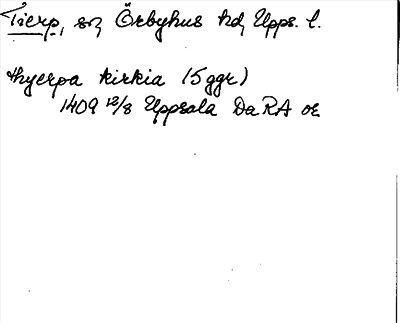 Tierp, sn, Örbyhus hd, Upps. l.
thyerpa kirkia (5 ggr)
1409 12/8 Uppsala Da RA or